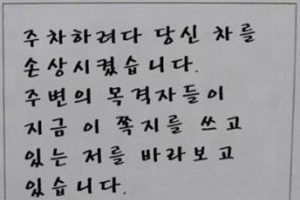 주차하려다 당신 차를
손상시켰습니다.
주변의 목격자들이
지금 이 쪽지를 쓰고
있는 저를 바라보고
있습니다.